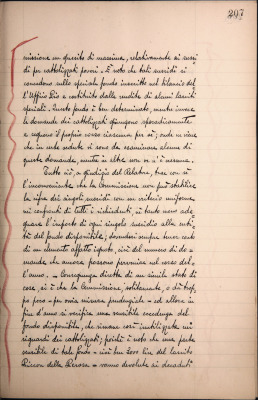 297
missione un quesito di massima, relativamente ai sussi
di pei cattolizzati poveri. È noto che tali sussidi si
concedono sullo speciale fondo inscritto nel bilancio del
l'Ufficio Pio e costituito dalla rendita di alcuni lasciti
speciali. Questo fondo è ben determinato, mentre invece
le domande dei cattolizzati giungono sporadicamente
e seguono il proprio corso ciascuna per sé; onde ne viene
che in una seduta vi sono da esaminare alcune di
queste domande, mentre in altre non ve n'è nessuna.
Tutto ciò, a giudizio del Relatore, trae con sé
l'inconveniente che la Commissione non può stabilire
la cifra dei singoli sussidi con un criterio uniforme
nei confronti di tutti i richiedenti, né tanto meno ade
guare l'importo di ogni singolo sussidio alla enti
tà del fondo disponibile, dovendosi sempre tener conto
di un elemento affatto ignoto, cioè del numero di do=
mande che ancora possono pervenire nel corso del
l'anno. Conseguenza diretta di un simile stato di
cose, si è che la Commissione, solitamente, o dà trop
po poco per ovvia misura prudenziale ed allora in
fine d'anno si verifica una sensibile eccedenza del
fondo disponibile, che rimane così inutilizzata nei
riguardi dei cattolizzati; poiché è noto che una parte
sensibile di tale fondo cioè ben Lire del lascito
della vanno devolute ai decaduti